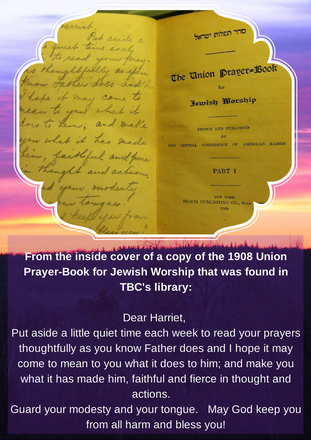 Put aside a
quiet time each
to read your pray-
thoughtfully as you
know Father does and
I hope it may come to
mean to you what it
does to him; and make
you what it has made
him, faithful and pure
in thought and action,
your modesty
tongue.
keep you from
סדר תפלות ישראל
The Union Prayer=Book
for
Jewish Worship
EDITED AND PUBLISHED
BY
THE CENTRAL CONFERENCE OF AMERICAN RABBIS
PART I
NEW YORK
BLOCH PUBLISHING CO.,
1908
From the inside cover of a copy of the 1908 Union
Prayer-Book for Jewish Worship that was found in
TBC's library:
Dear Harriet,
Put aside a little quiet time each week to read your prayers
thoughtfully as you know Father does and I hope it may
come to mean to you what it does to him; and make you
what it has made him, faithful and fierce in thought and
actions.
Guard your modesty and your tongue. May God keep you
from all harm and bless you!